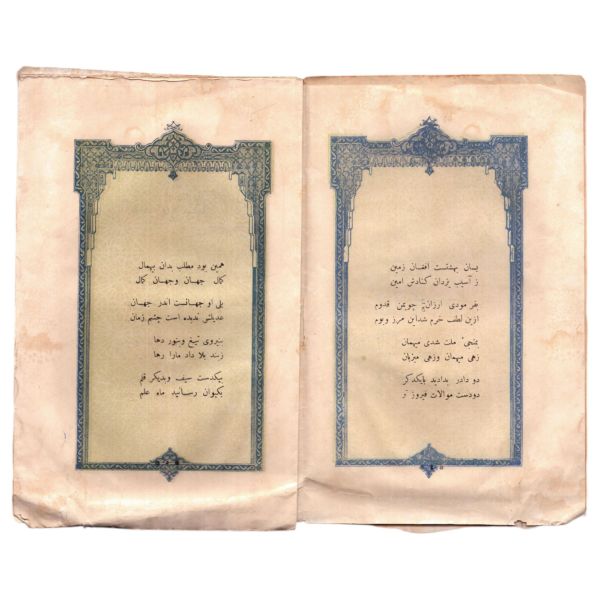 بسان بهشتست افغان زمین
ز آسیب یزدان کنادش امین
بفر مودی ارزان چویمن قدوم
ازین لطف خرم شداین مرز وبوم
بمنجیٔ ملت شدی میهمان
زهی میهمان وزهی میزبان
دو دادر بدادید بایکدگر
دودست موالات فیروز تر
همین بود مطلب بدان بیهمال
کمال جهان وجهان کمال
بلی او جهانست اندر جهان
عدیلش ندیده است چشم زمان
بنیروی تیغ وبنور دها
زبند بلا داد مارا رها
بیکدست سیف وبدیگر قلم
بکیوان رسانید ماه علم